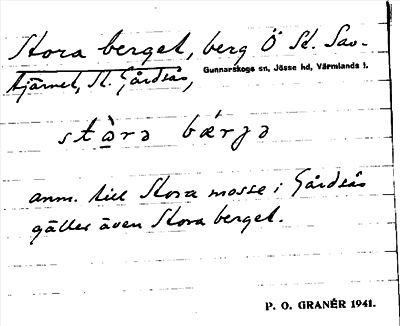 Stora berget, berg Ö St. Sav-
tjärnet, St. Gårdsås,
Gunnarskogs sn, Jösse hd, Värmlands l.
stɑ̀rə bǽrjə
anm. till Stora mosse i Gårdsås
gäller även Stora berget.
P. O. GRANÉR 1941.